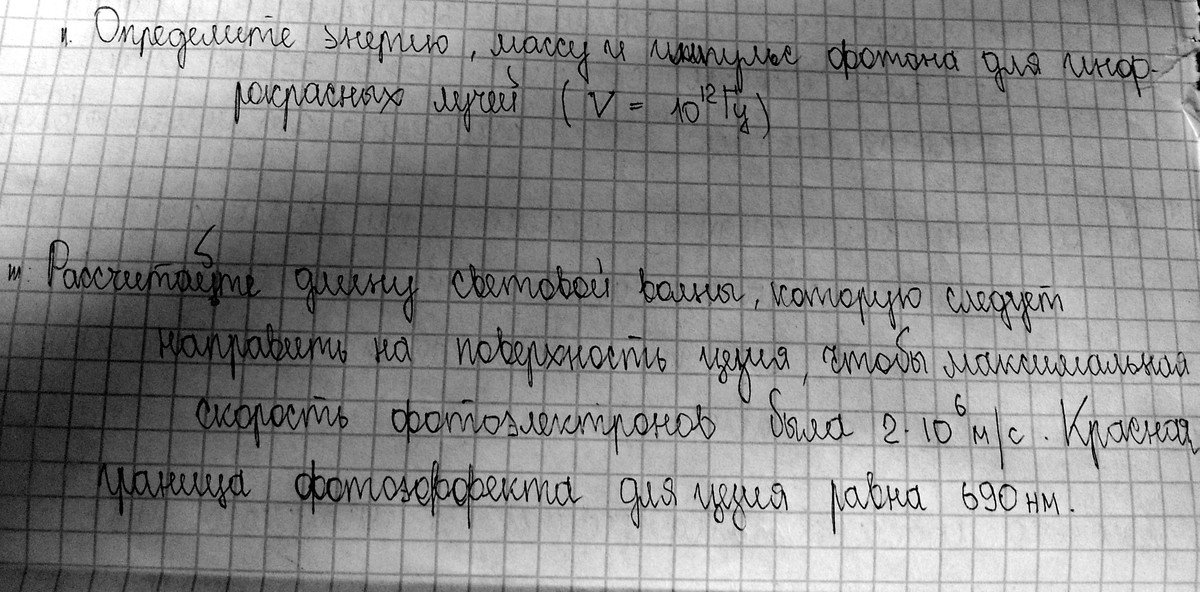 п. Определите энергию, массу и импульс фотона для инфр-
ракрасных лучей (V = 10¹² Гц)
ш. Рассчитайте длину световой волны, которую следует
направить на поверхность цезия, чтобы максимальная
скорость фотоэлектронов была 2·10⁶ м/с. Красная
граница фотоэффекта для цезия равна 690 нм.